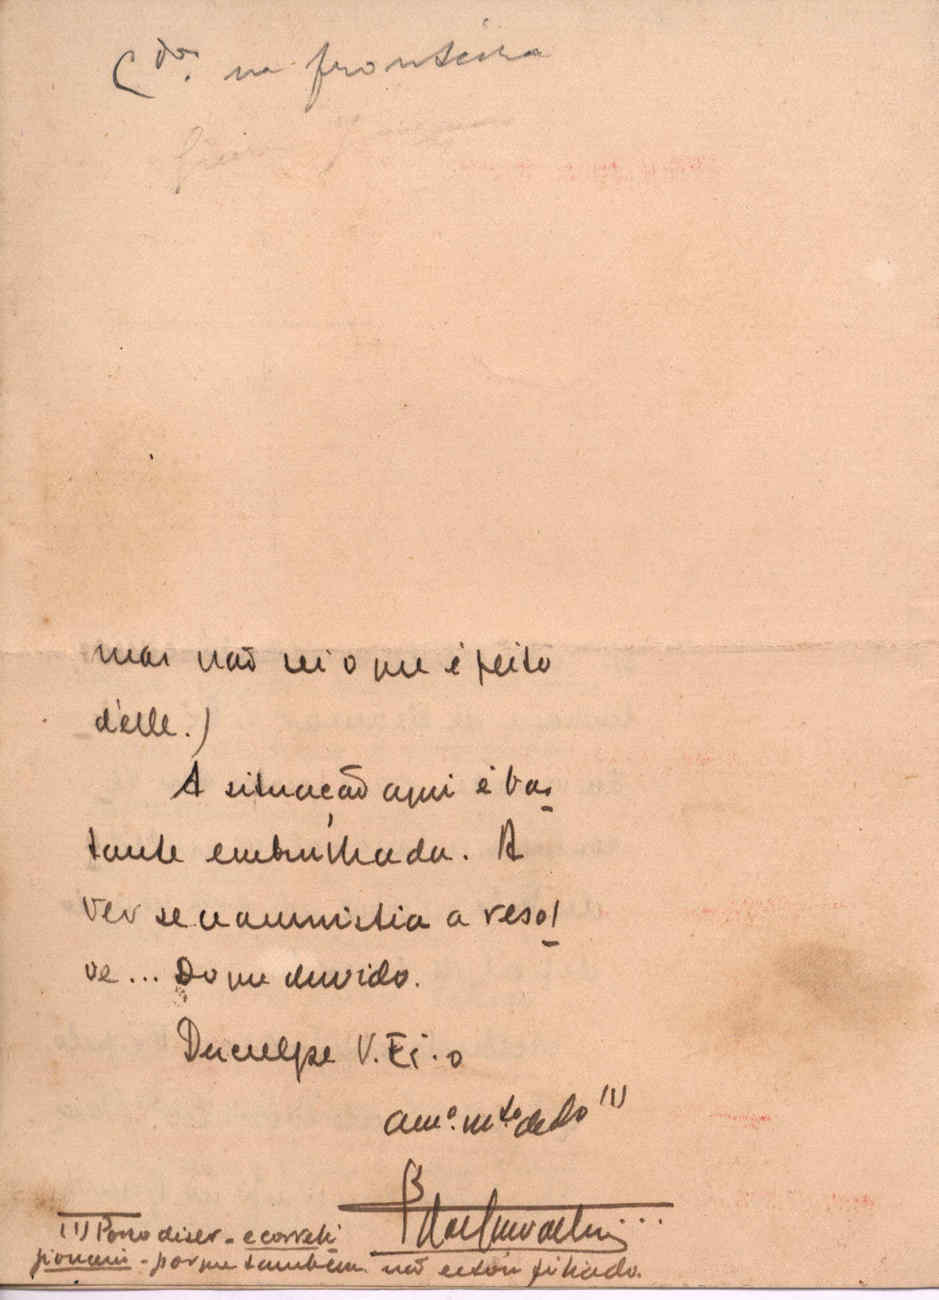 C.do na fronteira
mas não sei o que é feito
d'elle.)
A situação aqui é bas
tante embrulhada. A
ver se a amnistia a resol
ve... Do que duvido.
Desculpe V. Ex. o
am.o m.to ded.o (1)
(1) Posso dizer - e correli
gionario - porque tambem não estou filiado.